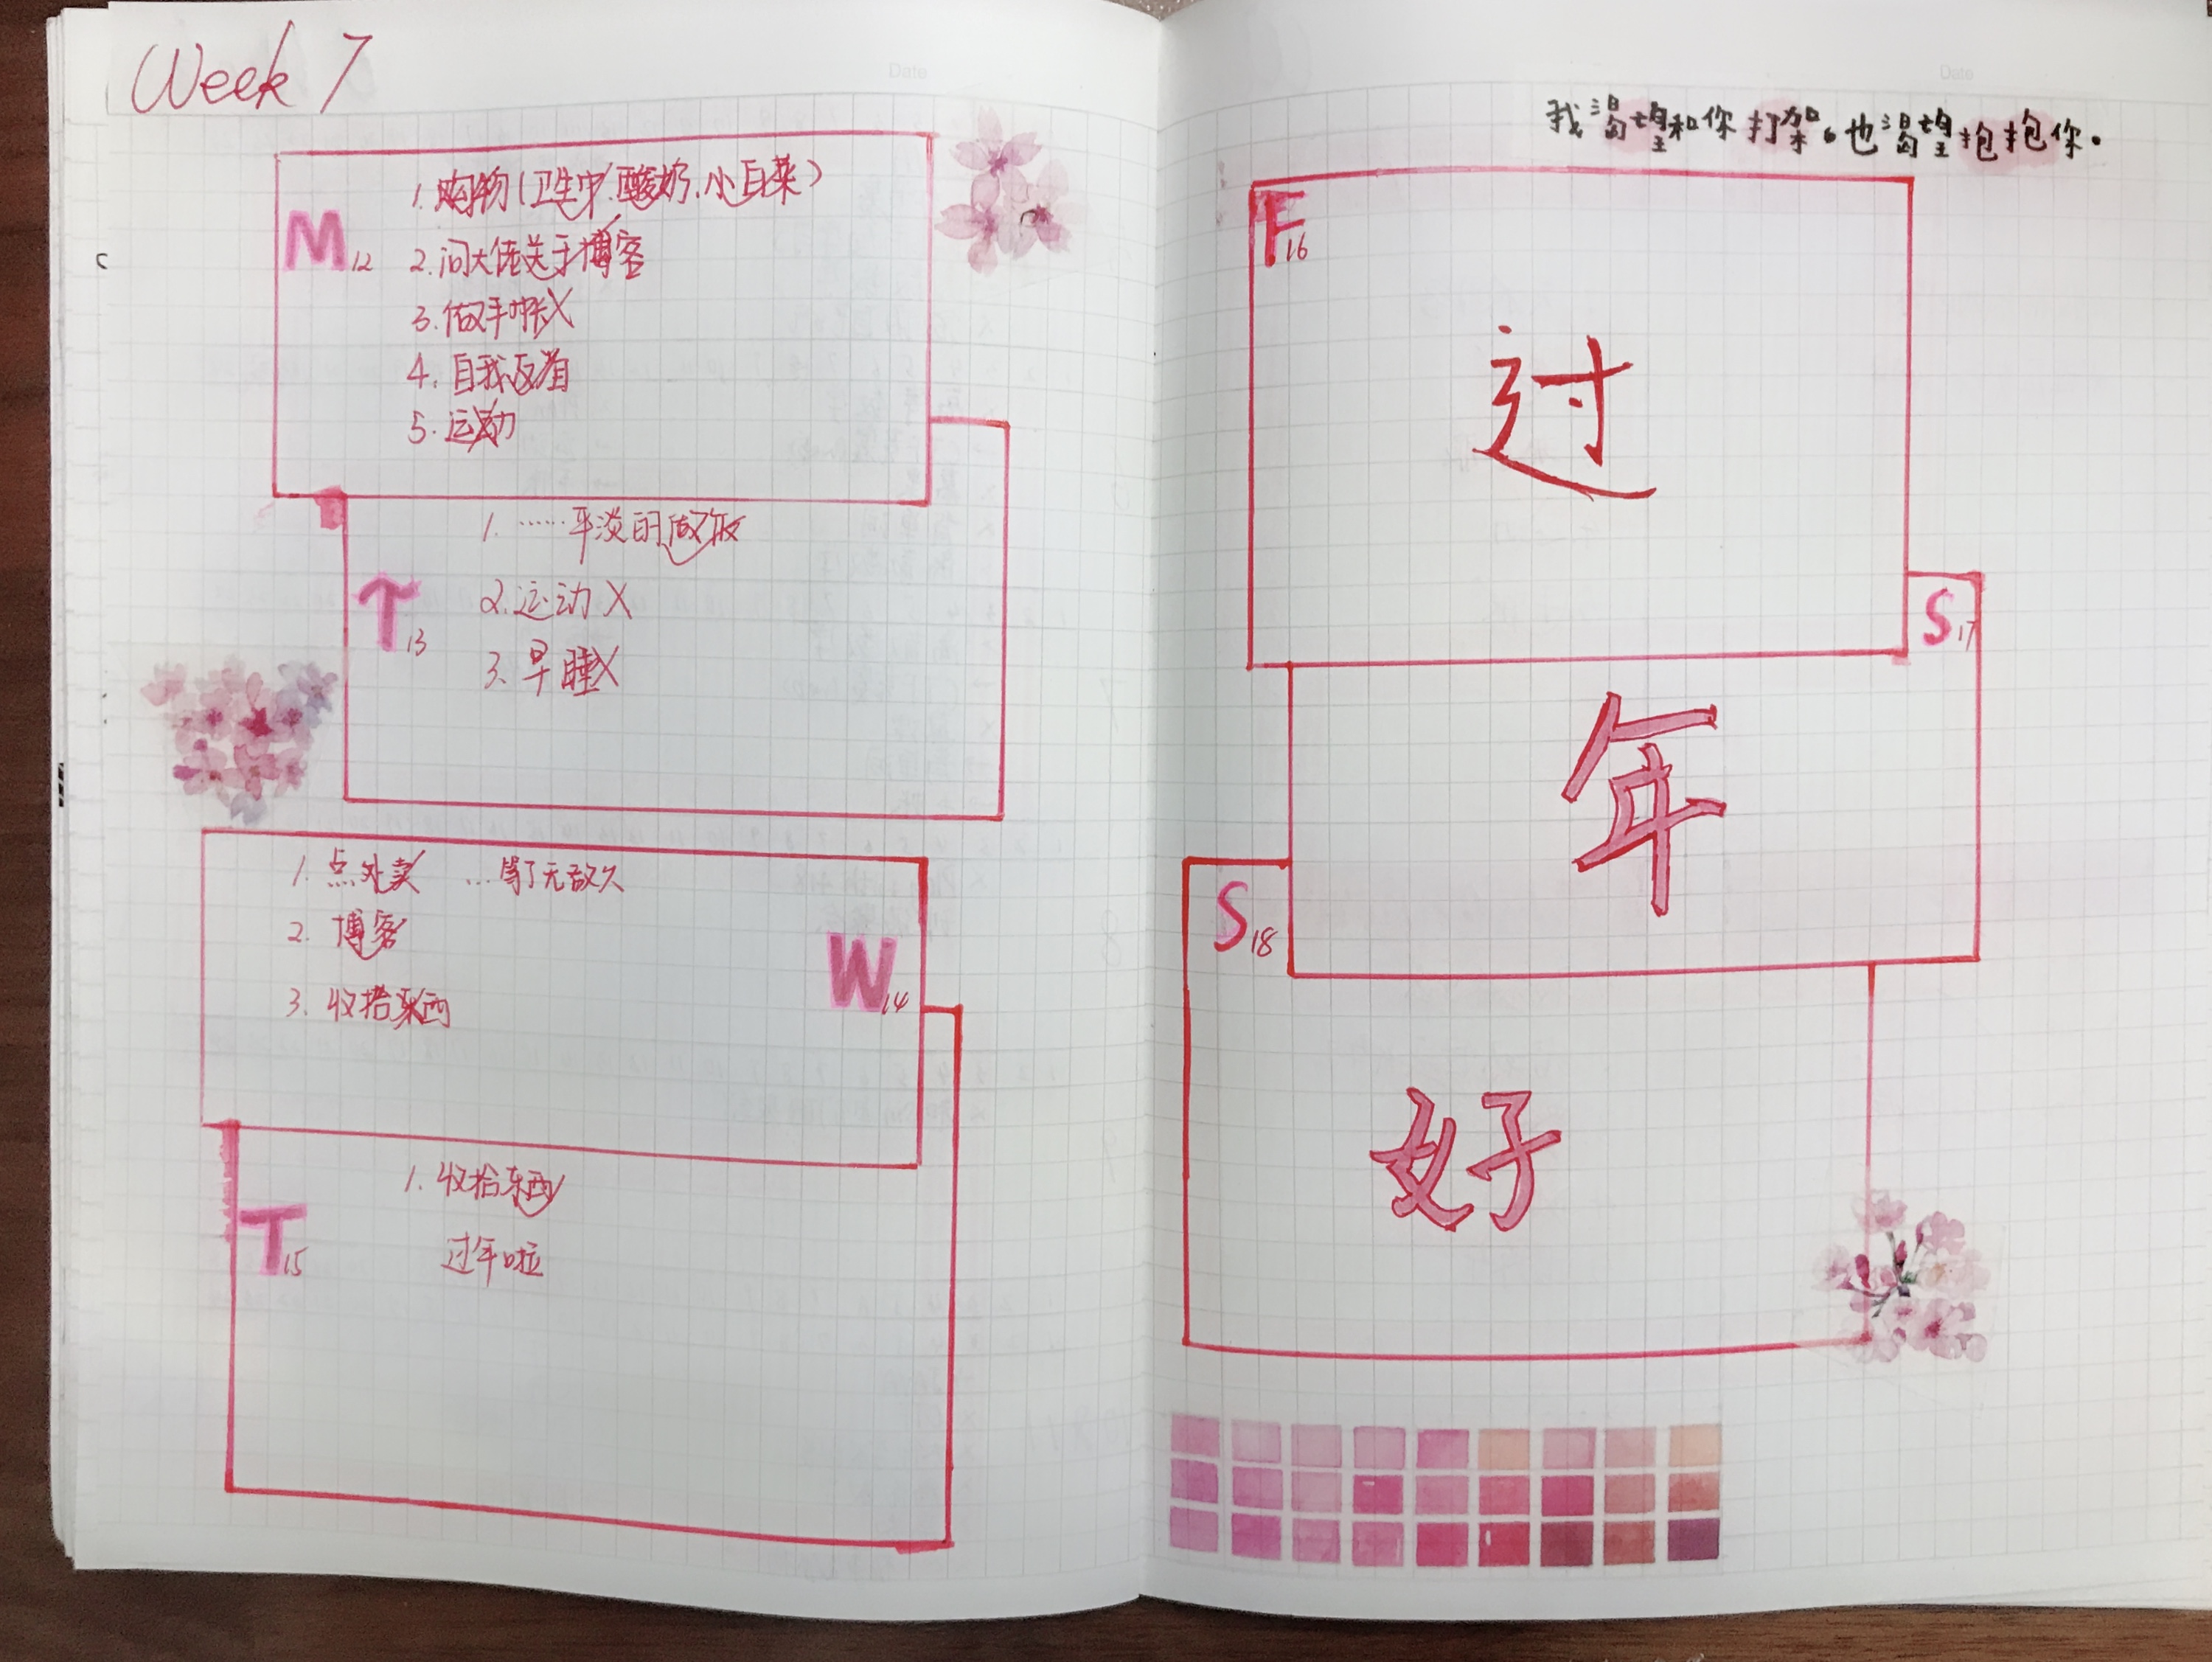 Week 7
Date
M 12
1. 购物(卫生巾、酸奶、小白菜)
2. 问大佬关于博客
3. 做手帐X
4. 自我反省
5. 运动
T 13
1. ……平淡的做饭
2. 运动 X
3. 早睡X
1. 点外卖 …等了无敌久
2. 博客
3. 收拾东西
W 14
T 15
1. 收拾东西
过年啦
Date
我渴望和你打架。也渴望抱抱你。
F 16
过
S 17
年
S 18
好